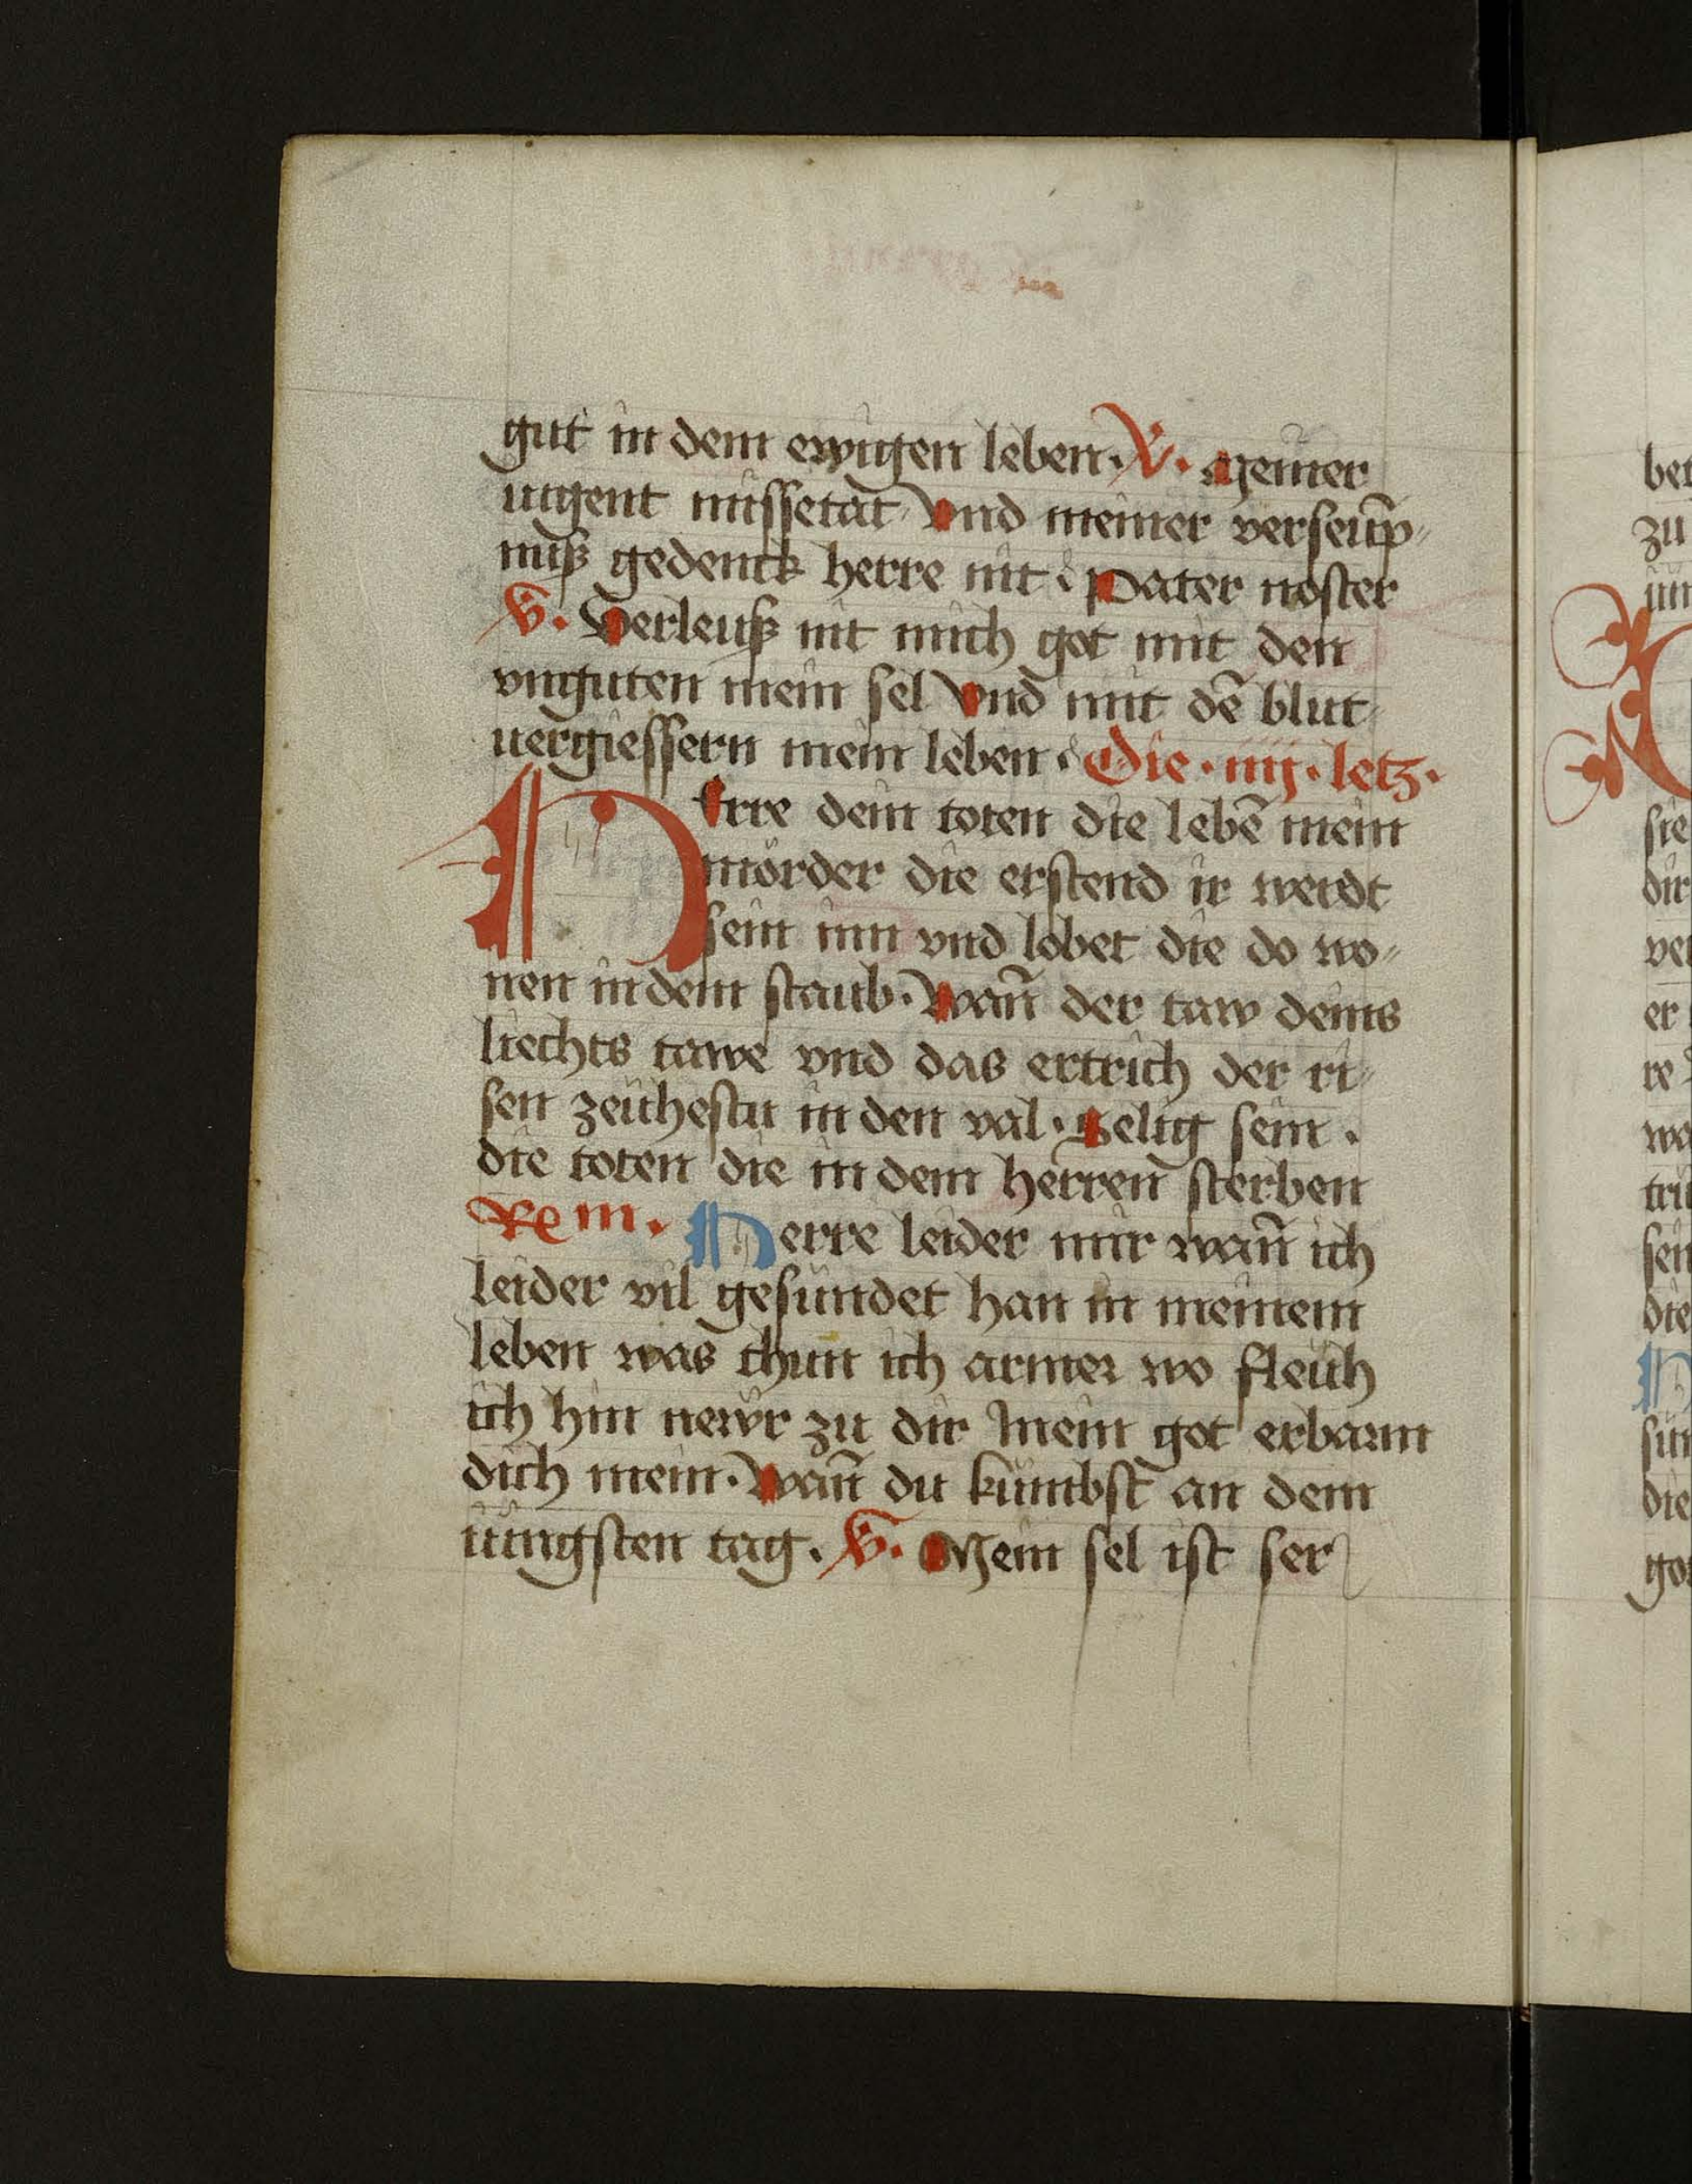 gut in dem ewigen leben. V. Meiner
iugent missetat Vnd meiner verseup̄
niß gedenck herre nit Pater noster
V. Verleuß nit mich got mit den
vnguten mein sel Vnd mit dē blut
uergiessern mein leben Die . iij . letz.
HErre dein toten die lebē mein
mörder die erstend ir werdt
sein inn vnd lobet die do wo
nen in dem staub. Wañ der taw deins
liechts tawe vnd das ertrich der ri
sen zeühestu in den val. Selig sein .
die toten die in dem herren sterben
Re m. Herre leider mir wañ ich
leider vil gesündet han in meinem
leben was thun ich armer wo fleüh
ich hin newr zu dir mein got erbarm
dich mein. Wañ du kumbst an dem
iüngsten tag. V. Mein sel ist ser
bet
zu
sie
dir
ver
er
re
sen
die
die
got